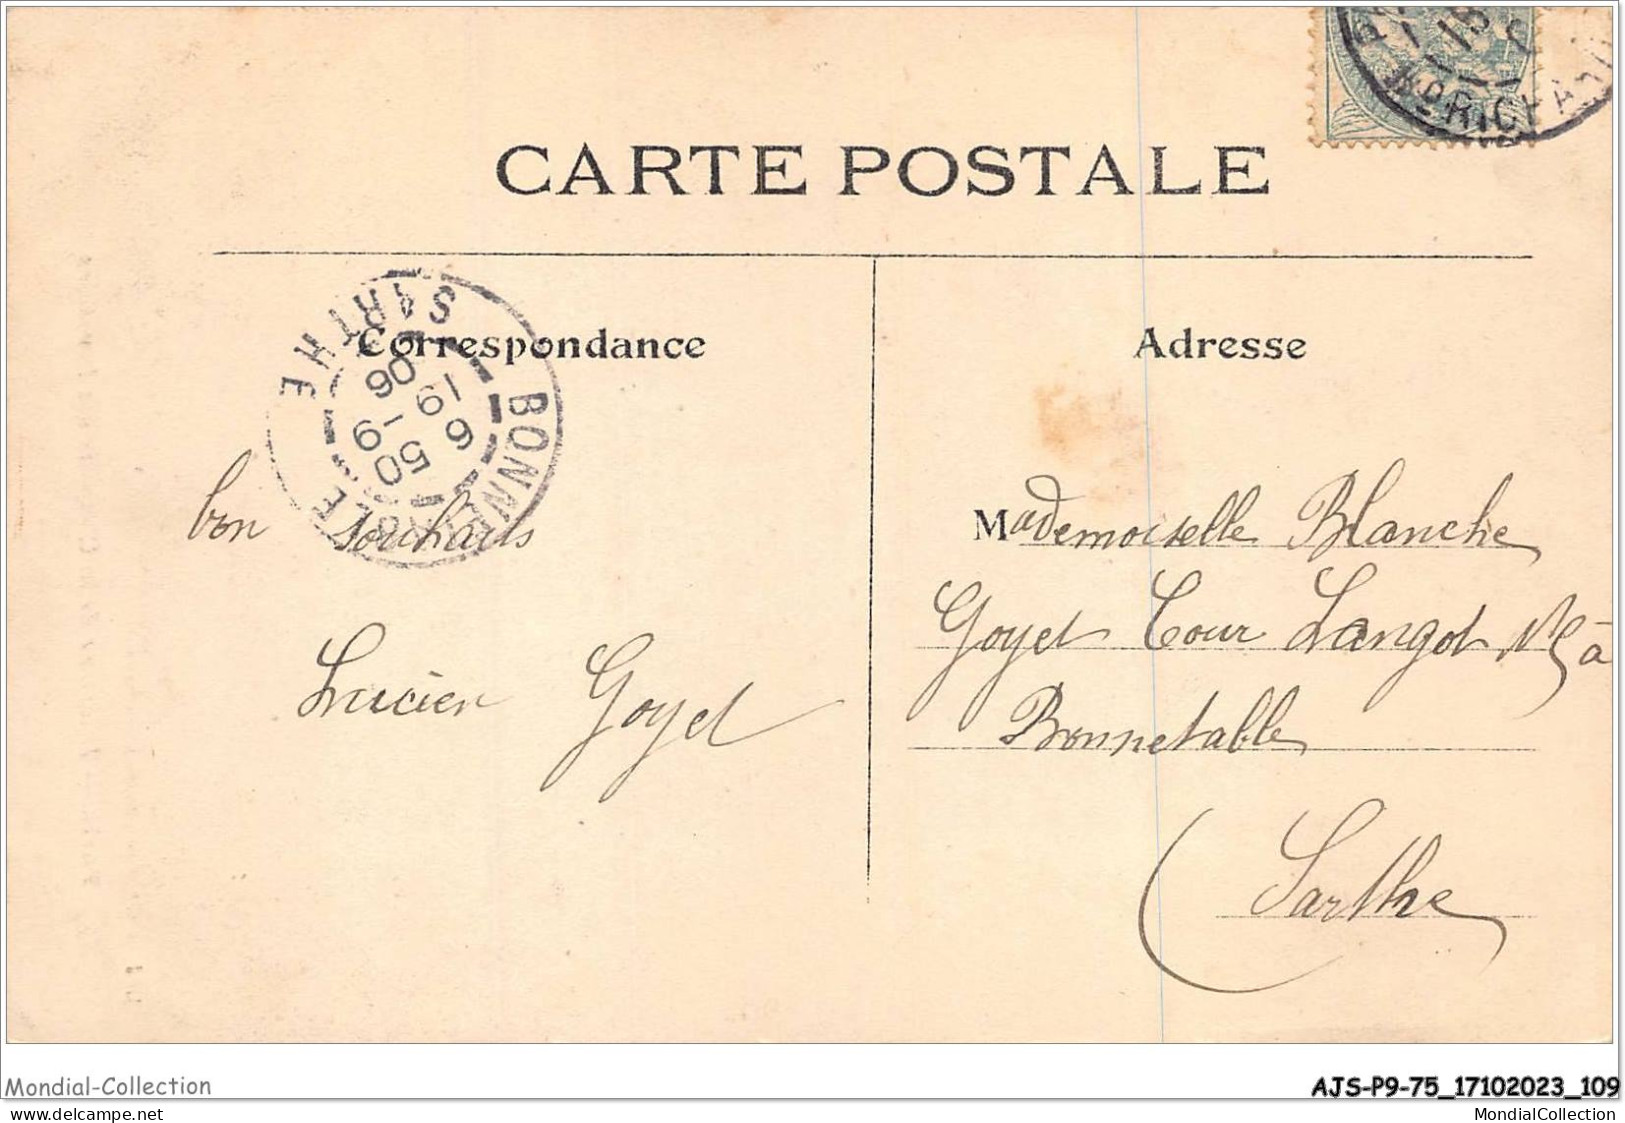 CARTE POSTALE
Correspondance
Adresse
SARTHE
BONNETABLE
6 50
19 -9
06
bon souhaits
Lucien Goyet
Mademoiselle Blanche
Goyet Cour Langot N 5 à
Bonnetable
(Sarthe
Mondial-Collection
AJS-P9-75_17102023_109
delcampe.net
MondialCollection